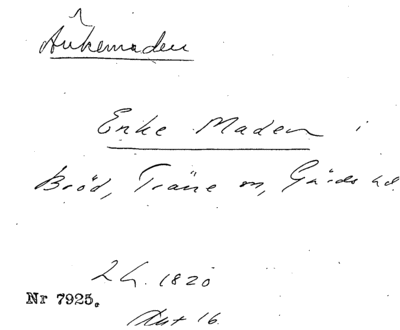 Änkemaden
Enke Maden i
Bröd, Träne sn, Gärds hd.
LH. 1820
Nr 7925.
Akt 16.